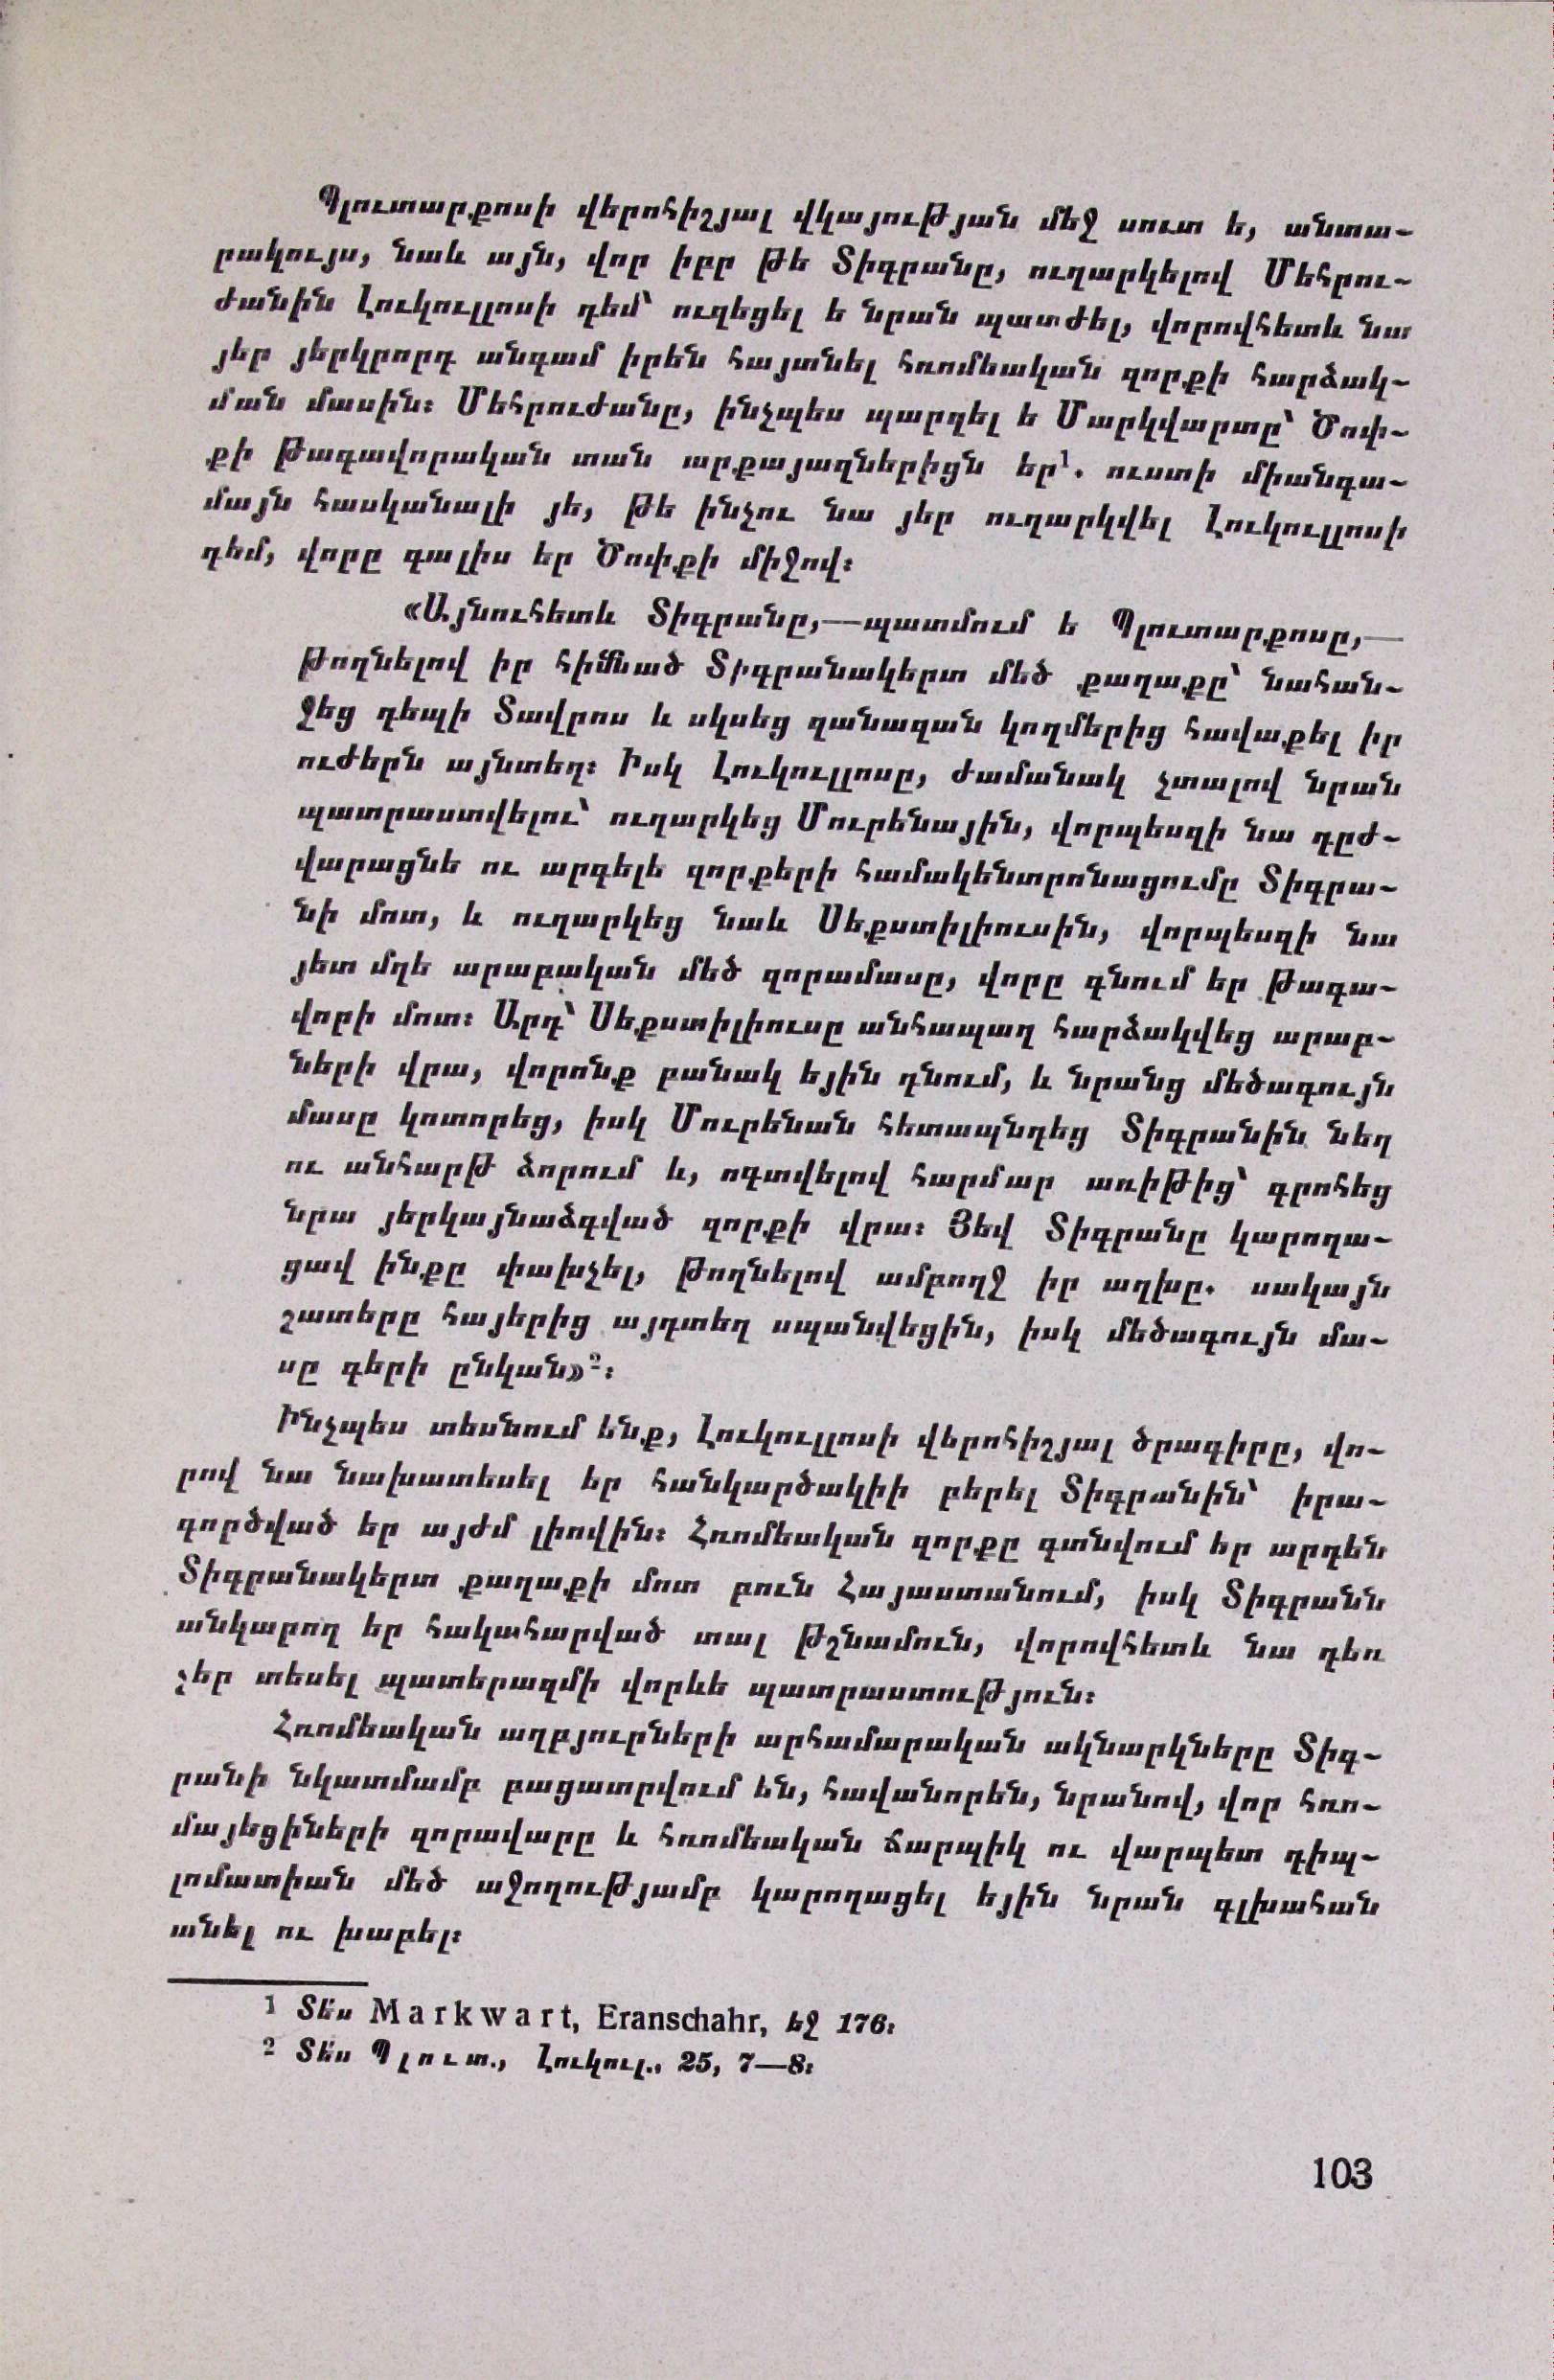 Պլուտարքոսի վերոհիշյալ վկայության մեջ սուտ ե, անտա-
րակույս, նաև այն, վոր իբր թե Տիգրանը, ուղարկելով Մեհրու-
ժանին Լուկուլլոսի դեմ՝ ուզեցել ե նրան պատժել, վորովհետև նա
յեր յերկրորդ անգամ իրեն հայտնել հռոմեական զորքի հարձակ-
ման մասին։ Մեհրուժանը, ինչպես պարզել ե Մարկվարտը՝ Ծոփ-
քի թագավորական տան արքայազներիցն եր¹. ուստի միանգա-
մայն հասկանալի յե, թե ինչու նա յեր ուղարկվել Լուկուլլոսի
դեմ, վորը գալիս եր Ծոփքի միջով։
«Այնուհետև Տիգրանը,—պատմում ե Պլուտարքոսը,—
թողնելով իր հիմնած Տիգրանակերտ մեծ քաղաքը՝ նահան-
ջեց դեպի Տավրոս և սկսեց զանազան կողմերից հավաքել իր
ուժերն այնտեղ։ Իսկ Լուկուլլոսը, ժամանակ չտալով նրան
պատրաստվելու՝ ուղարկեց Մուրենային, վորպեսզի նա դըժ-
վարացնե ու արգելե զորքերի համակենտրոնացումը Տիգրա-
նի մոտ, և ուղարկեց նաև Սեքստիլիուսին, վորպեսզի նա
յետ մղե արաբական մեծ զորամասը, վորը գնում եր թագա-
վորի մոտ։ Արդ՝ Սեքստիլիուսը անհապաղ հարձակվեց արաբ-
ների վրա, վորոնք բանակ եյին դնում, և նրանց մեծագույն
մասը կոտորեց, իսկ Մուրենան հետապնդեց Տիգրանին նեղ
ու անհարթ ձորում և, ոգտվելով հարմար առիթից՝ գրոհեց
նրա յերկայնաձգված զորքի վրա։ Յեվ Տիգրանը կարողա-
ցավ ինքը փախչել, թողնելով ամբողջ իր աղխը. սակայն
շատերը հայերից այդտեղ սպանվեցին, իսկ մեծագույն մա-
սը գերի ընկան»²։
Ինչպես տեսնում ենք, Լուկուլլոսի վերոհիշյալ ծրագիրը, վո-
րով նա նախատեսել եր հանկարծակիի բերել Տիգրանին՝ իրա-
գործված եր այժմ լիովին։ Հռոմեական զորքը գտնվում եր արդեն
Տիգրանակերտ քաղաքի մոտ բուն Հայաստանում, իսկ Տիգրանն
անկարող եր հակահարված տալ թշնամուն, վորովհետև նա դեռ
չեր տեսել պատերազմի վորևե պատրաստություն։
Հռոմեական աղբյուրների արհամարական ակնարկները Տիգ-
րանի նկատմամբ բացատրվում են, հավանորեն, նրանով, վոր հռո-
մայեցիների զորավարը և հռոմեական ճարպիկ ու վարպետ դիպ-
լոմատիան մեծ աջողությամբ կարողացել եյին նրան գլխահան
անել ու խաբել։
1 Տե՛ս Markwart, Eranschahr, եջ 176։
2 Տե՛ս Պլուտ., Լուկուլ., 25, 7—8։
103